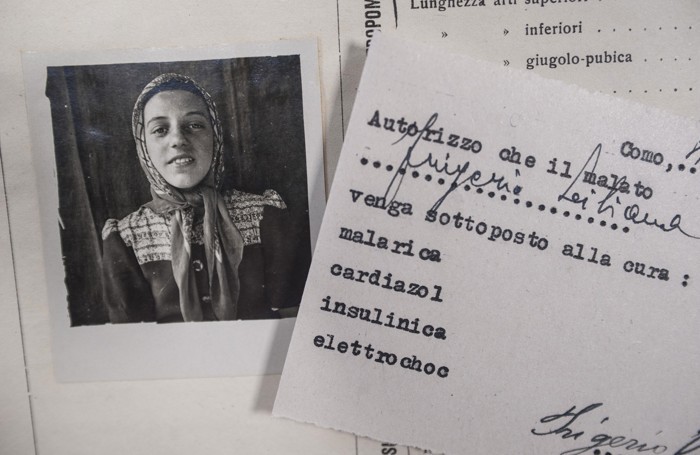 Lunghezza arti superiori . .
» » inferiori . . . . .
» » giugolo-pubica . . . .
Como,..
Autorizzo che il malato
frigerio
venga sottoposto alla cura :
malarica
cardiazol
insulinica
elettrochoc
Frigerio